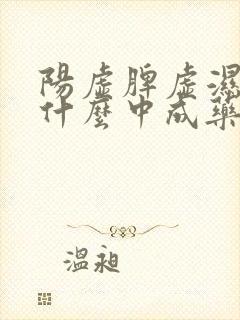 陽虛脾虛濕
什麼中成藥
溫昶